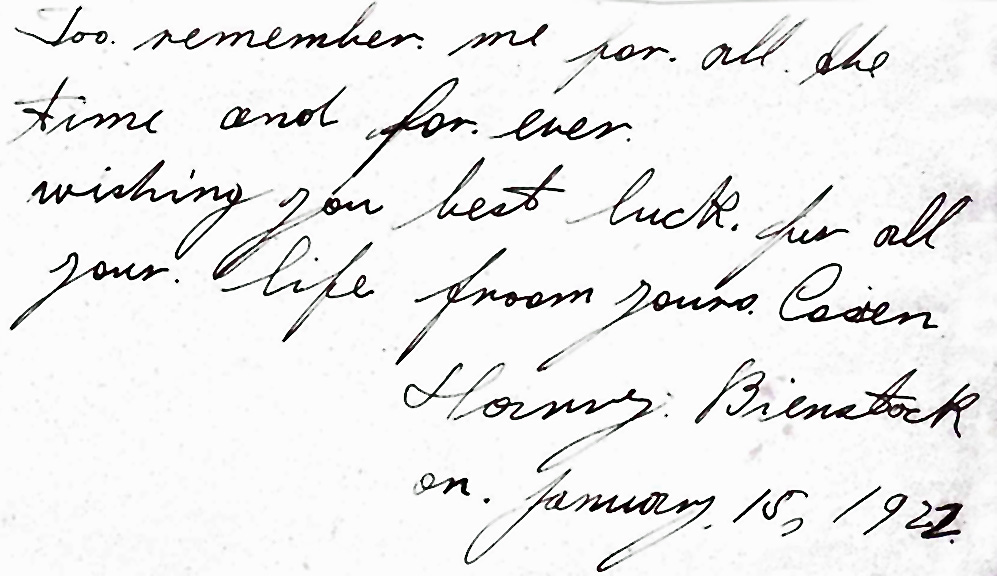 Too. remember. me for. all. the
time and for. ever.
wishing you best luck. fur all
your. life froom yours. Cosien
Hanny. Bienstock
on. January. 15, 1922.